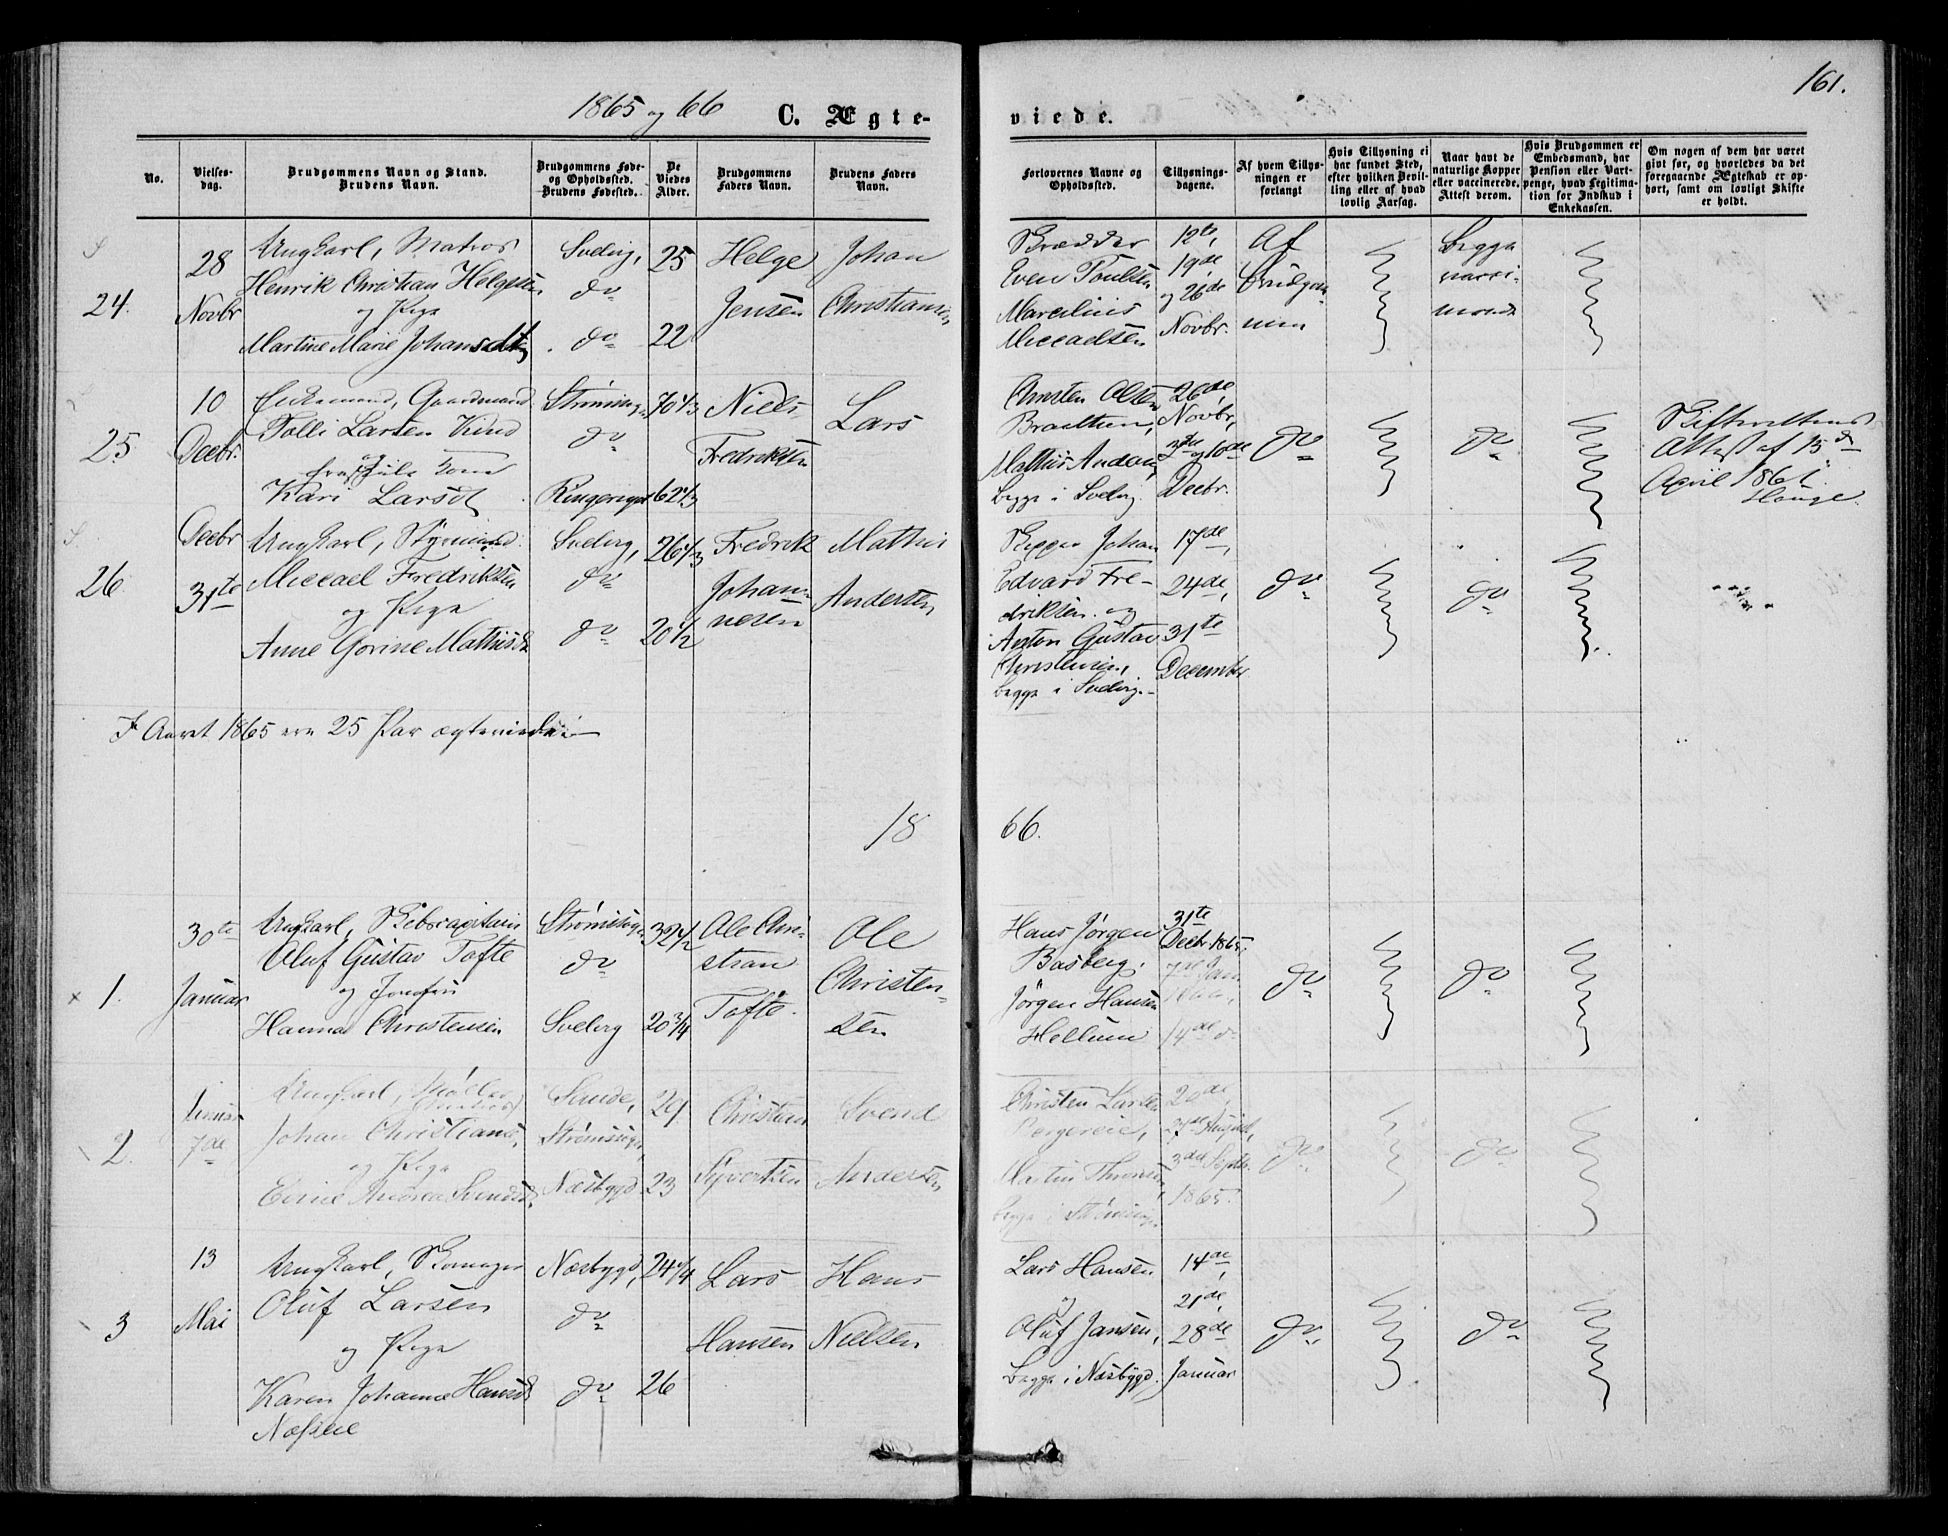 161.
1865 og 66 C. Ægte-
viede.
No.
Vielses-
dag.
Brudgommens Navn og Stand.
Brudens Navn.
Brudgommens Føde-
og Opholdssted.
Brudens Fødested.
De
Viedes
Alder.
Brudgommens
Faders Navn.
Brudens Faders
Navn.
Forlovernes Navne og
Opholdssted.
Tillysnings-
dagene.
Af hvem Tillys-
ningen er
forlangt.
Hvis Tillysning ei
har fundet Sted,
efter hvilken Bevil-
ling eller af hvad
lovlig Aarsag.
Naar havt de
naturlige Kopper
eller vaccinerede.
Attest derom.
Hvis Brudgommen er
Embedsmand, har
Pension eller Vart-
penge, hvad Legitima-
tion for Indskud i
Enkekassen.
Om nogen af dem har været
gift før, og hvorledes da det
foregaaende Ægteskab er op-
hørt, samt om lovligt Skifte
er holdt.
24.
28
Novbr
Ungkarl, Matros
Henrik Christian Helgesen
og Pige
Martine Marie Johansdt
Svelvig,
do
do
25
22
Helge
Jensen
Johan
Christiansen
Even Poulsen
Marcilius
Miccaelsen
12te,
19de
og 26de
Novbr.
Af
Brudgom-
men
Begge
vacci-
nerede
25
10
Decbr.
Enkemand, Gaardmand
Tolli Larsen Kind
Kari Larsdt
Strømsog
do
Ringerige
70 1/3
62 1/3
Niels
Fredriksen
Lars
Christen Olsen
Braathen,
Mathis Anders
begge i Svelvig.
26de,
Novbr,
3de og 10de
Decbr.
do
do
Skifterettens
Attest af 15de
April 1861.
Hauge.
26
Decbr
31te
Ungkarl, Styrmand
Miccael Fredriksen
og Pige
Anne Gorine Mathisdt
Svelvig,
do
do
26 1/3
20 1/2
Fredrik
Johan-
nesen
Mathis
Andersen
Skipper Johan
Edvard Fre-
driksen og
Anton Gustav
Christensen,
begge i Svelvig.
17de,
24de,
31te
December
do
do
I Aaret 1865 ere 25 Par ægteviede
18
66.
1.
30te
Januar
Ungkarl, Skibscapitain
Oluf Gustav Tofte
og Jomfru
Hanna Christensen
Strømsogn
do
Svelvig
32 1/2
20 3/4
Ole Chri-
stian
Tofte.
Ole
Christen-
sen
Hans Jørgen
Basberg.
Jørgen Hansen
Hellum
31te
Decbr 1865.
14de do
do
do
2.
7de
Ungkarl,
Johan Christians.
og Pige
Sande,
Strømsogn,
Næsbygd
29
23
Christian
Syvertsen
Svend
Andersen
Christen Larsen
Bergereie,
begge i Strømsogn
20de,
27de August,
3die Septbr.
1865.
do
do
3
13
Mai
Ungkarl, Skomager
Oluf Larsen
og Pige
Karen Johanne Hansdt
Næsbygd,
do
do
24 1/4
26
Lars
Hansen
Hans
Nielsen
Lars Hansen
og
Oluf Jansen,
begge i Næsbygd.
14de,
21de,
28de
Januar
do
do